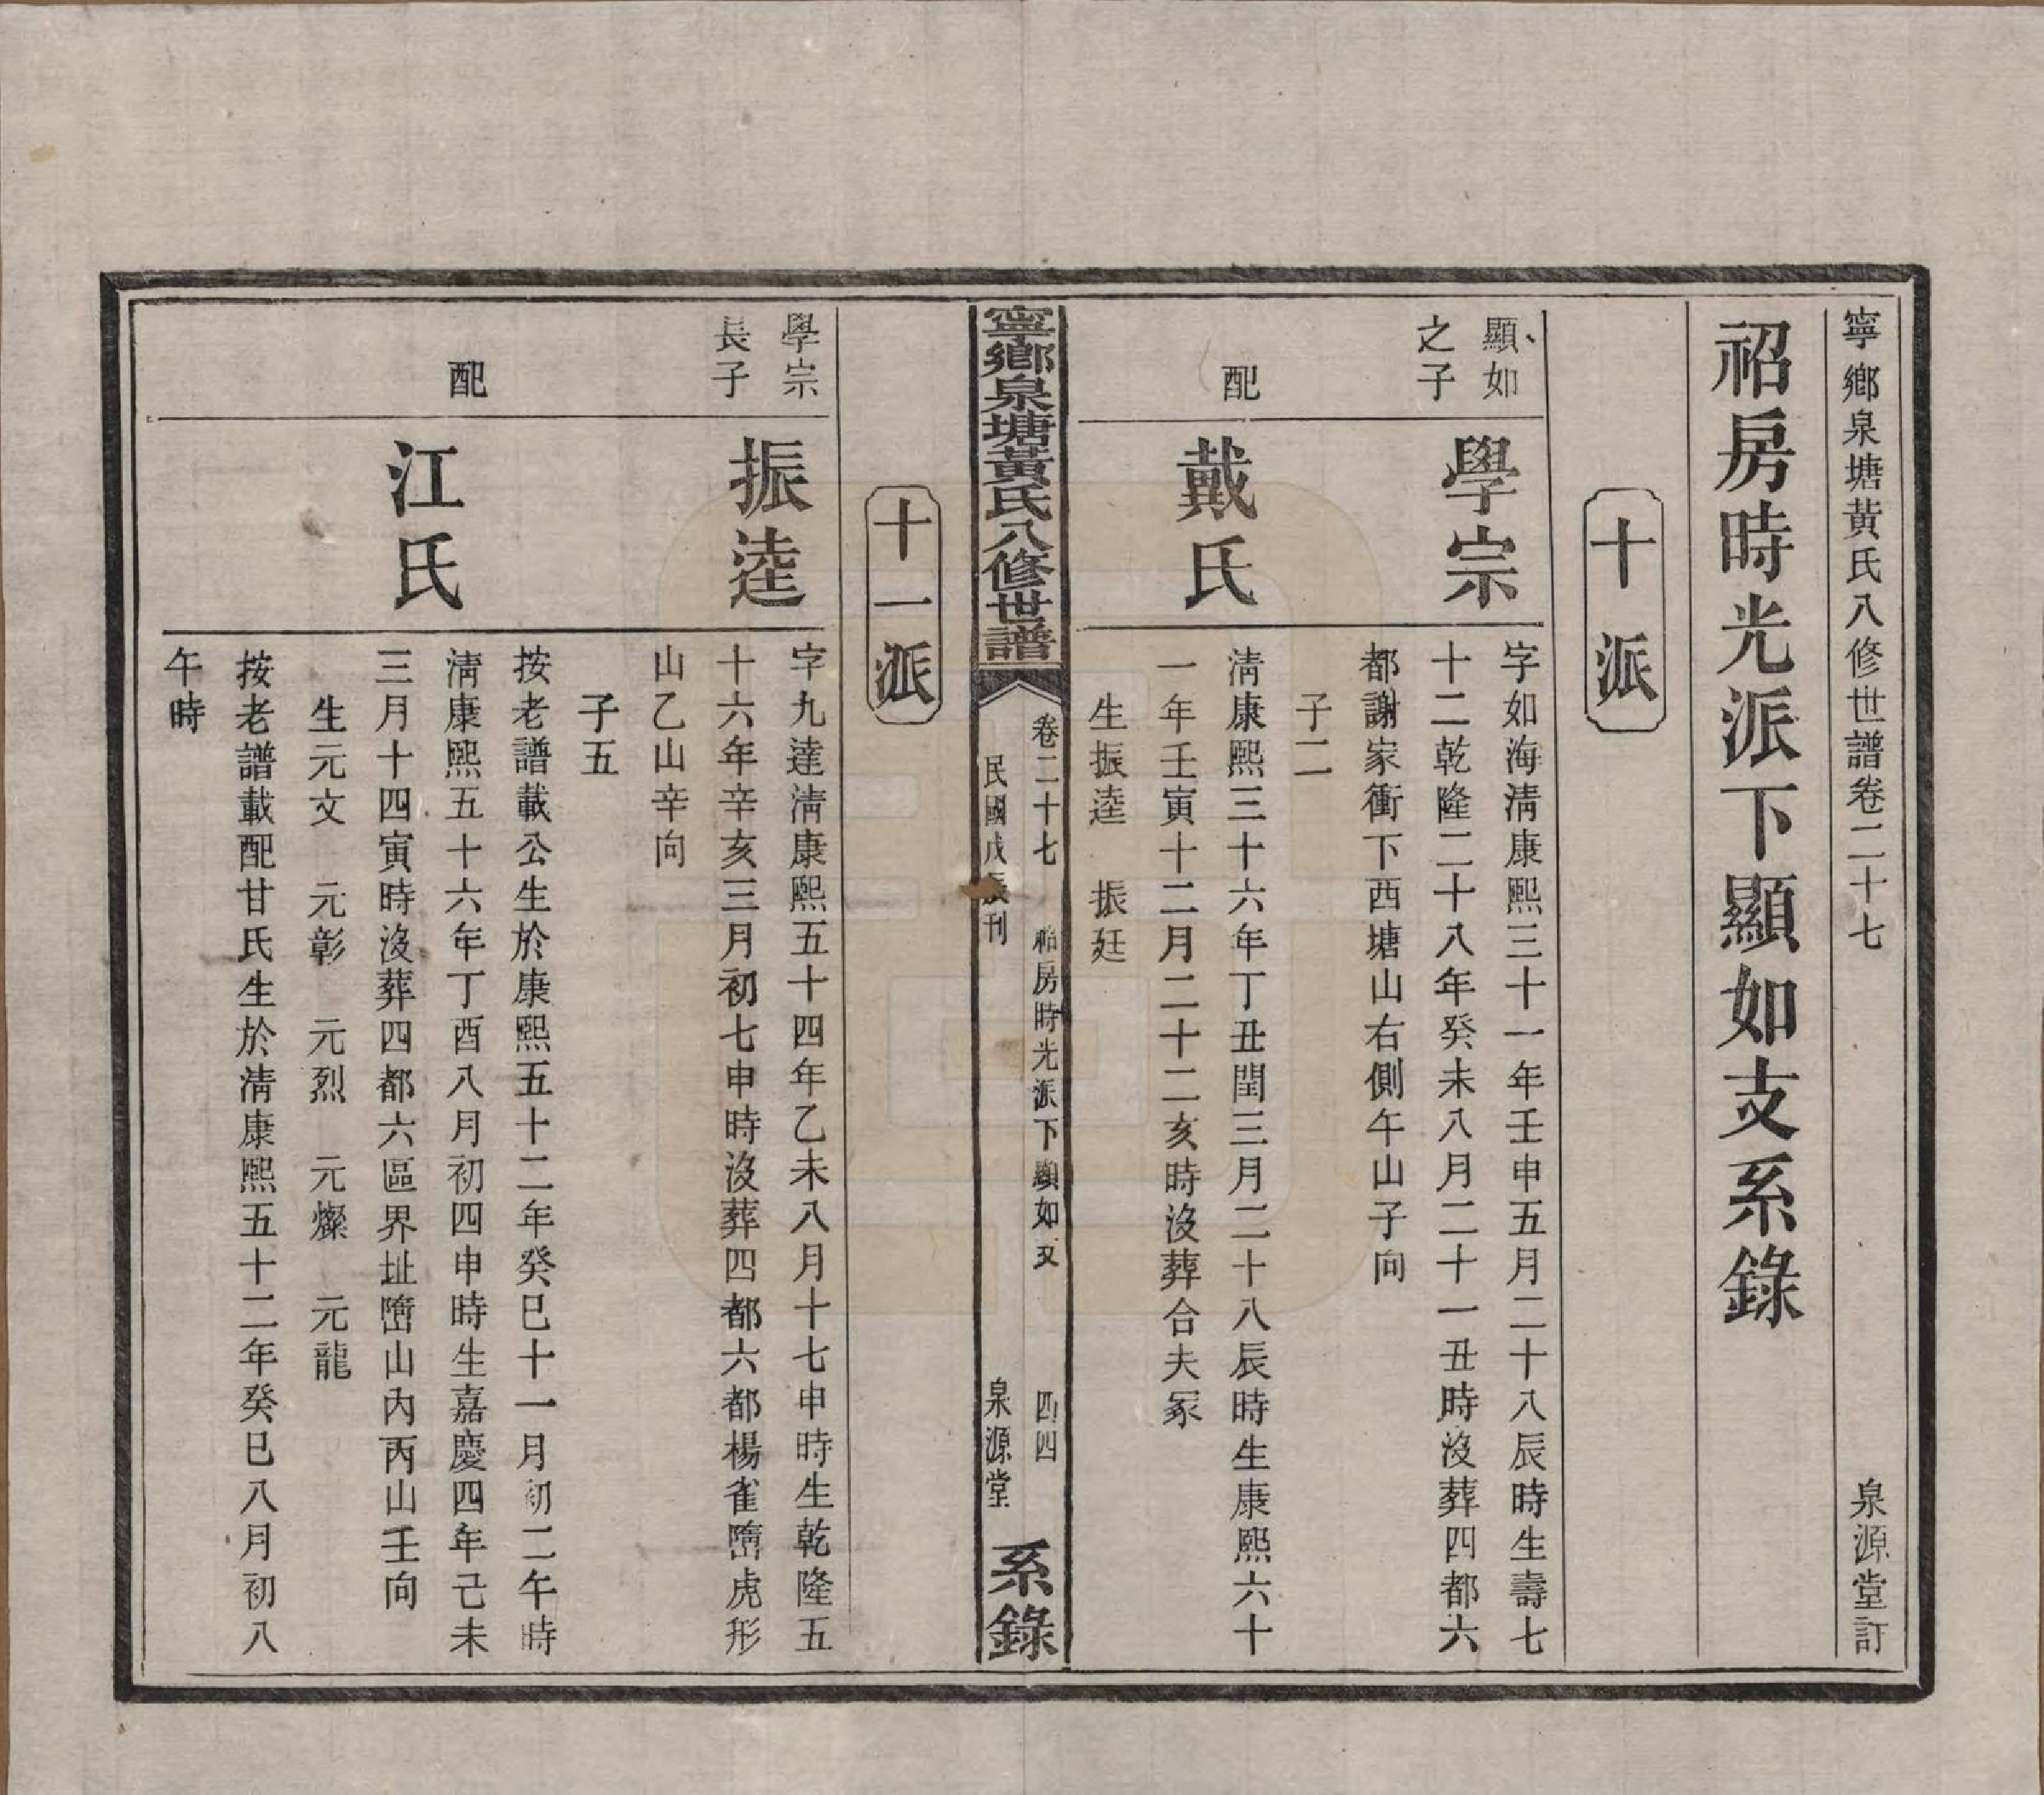 寧鄉泉塘黃氏八修世譜卷二十七
泉源堂訂
祒房時光派下顯如支系錄
十派
顯如
之子
學宗
字如海淸康熙三十一年壬申五月二十八辰時生壽七
十二乾隆二十八年癸未八月二十一丑時沒葬四都六
都謝家衝下西塘山右側午山子向
子二
配
戴氏
淸康熙三十六年丁丑閏三月二十八辰時生康熙六十
一年壬寅十二月二十二亥時沒葬合夫冢
生振逵 振廷
寧鄉泉塘黃氏八修世譜
卷二十七 祒房時光派下顯如支 四四
民國戊辰刊 泉源堂
系錄
十一派
學宗
長子
振逵
字九達淸康熙五十四年乙未八月十七申時生乾隆五
十六年辛亥三月初七申時沒葬四都六都楊雀 虎形
山乙山辛向
子五
按老譜載公生於康熙五十二年癸巳十一月初二午時
配
江氏
淸康熙五十六年丁酉八月初四申時生嘉慶四年己未
三月十四寅時沒葬四都六區界址 山內丙山壬向
生元文 元彰 元烈 元燦 元龍
按老譜載配甘氏生於淸康熙五十二年癸巳八月初八
午時